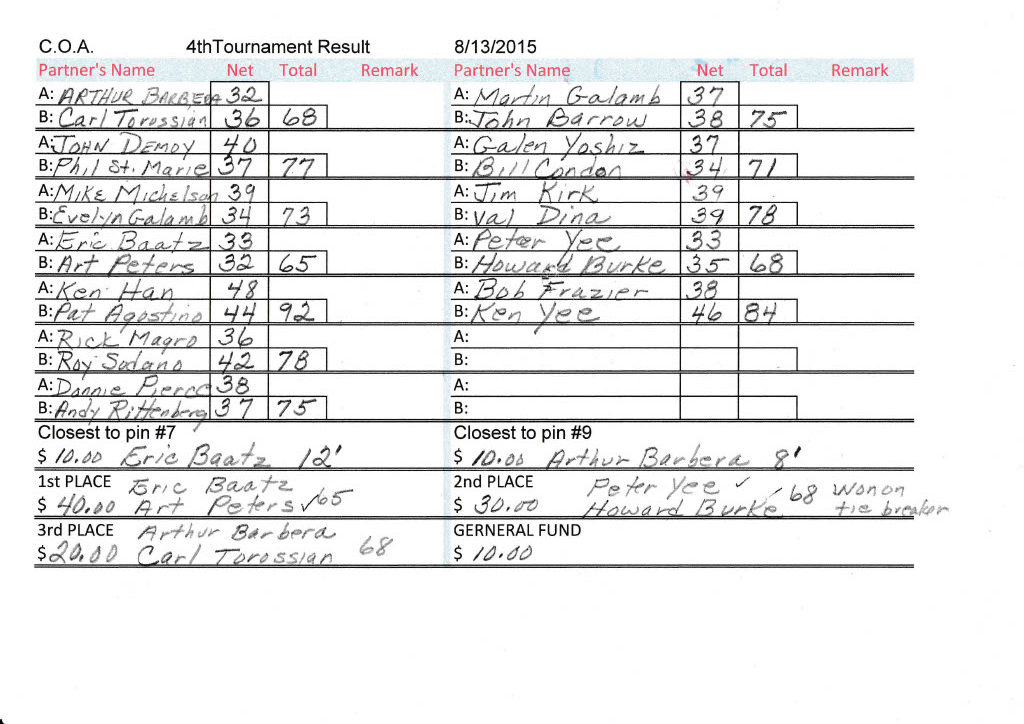 C.O.A. 4thTournament Result 8/13/2015
Partner's Name Net Total Remark Partner's Name Net Total Remark
A: ARTHUR BARBERA 32 A: Martin Galamb 37
B: Carl Torossian 36 68 B: John Barrow 38 75
A: JOHN DEMOY 40 A: Galen Yoshiz 37
B: Phil St. Marie 37 77 B: Bill Condon 34 71
A: MIKE Michelson 39 A: Jim Kirk 39
B: Evelyn Galamb 34 73 B: Val Dina 39 78
A: Eric Baatz 33 A: Peter Yee 33
B: Art Peters 32 65 B: Howard Burke 35 68
A: Ken Han 48 A: Bob Frazier 38
B: Pat Agostino 44 92 B: Ken Yee 46 84
A: Rick Magro 36 A:
B: Roy Sodano 42 78 B:
A: Donnie Pierce 38 A:
B: Andy Rittenberg 37 75 B:
Closest to pin #7 Closest to pin #9
$ 10.00 Eric Baatz 12' $ 10.00 Arthur Barbera 8'
1st PLACE Eric Baatz 2nd PLACE Peter Yee ✓
$ 40.00 Art Peters ✓65 $ 30.00 Howard Burke / 68 Won on tie breaker
3rd PLACE Arthur Barbera GERNERAL FUND
$20.00 Carl Torossian 68 $ 10.00